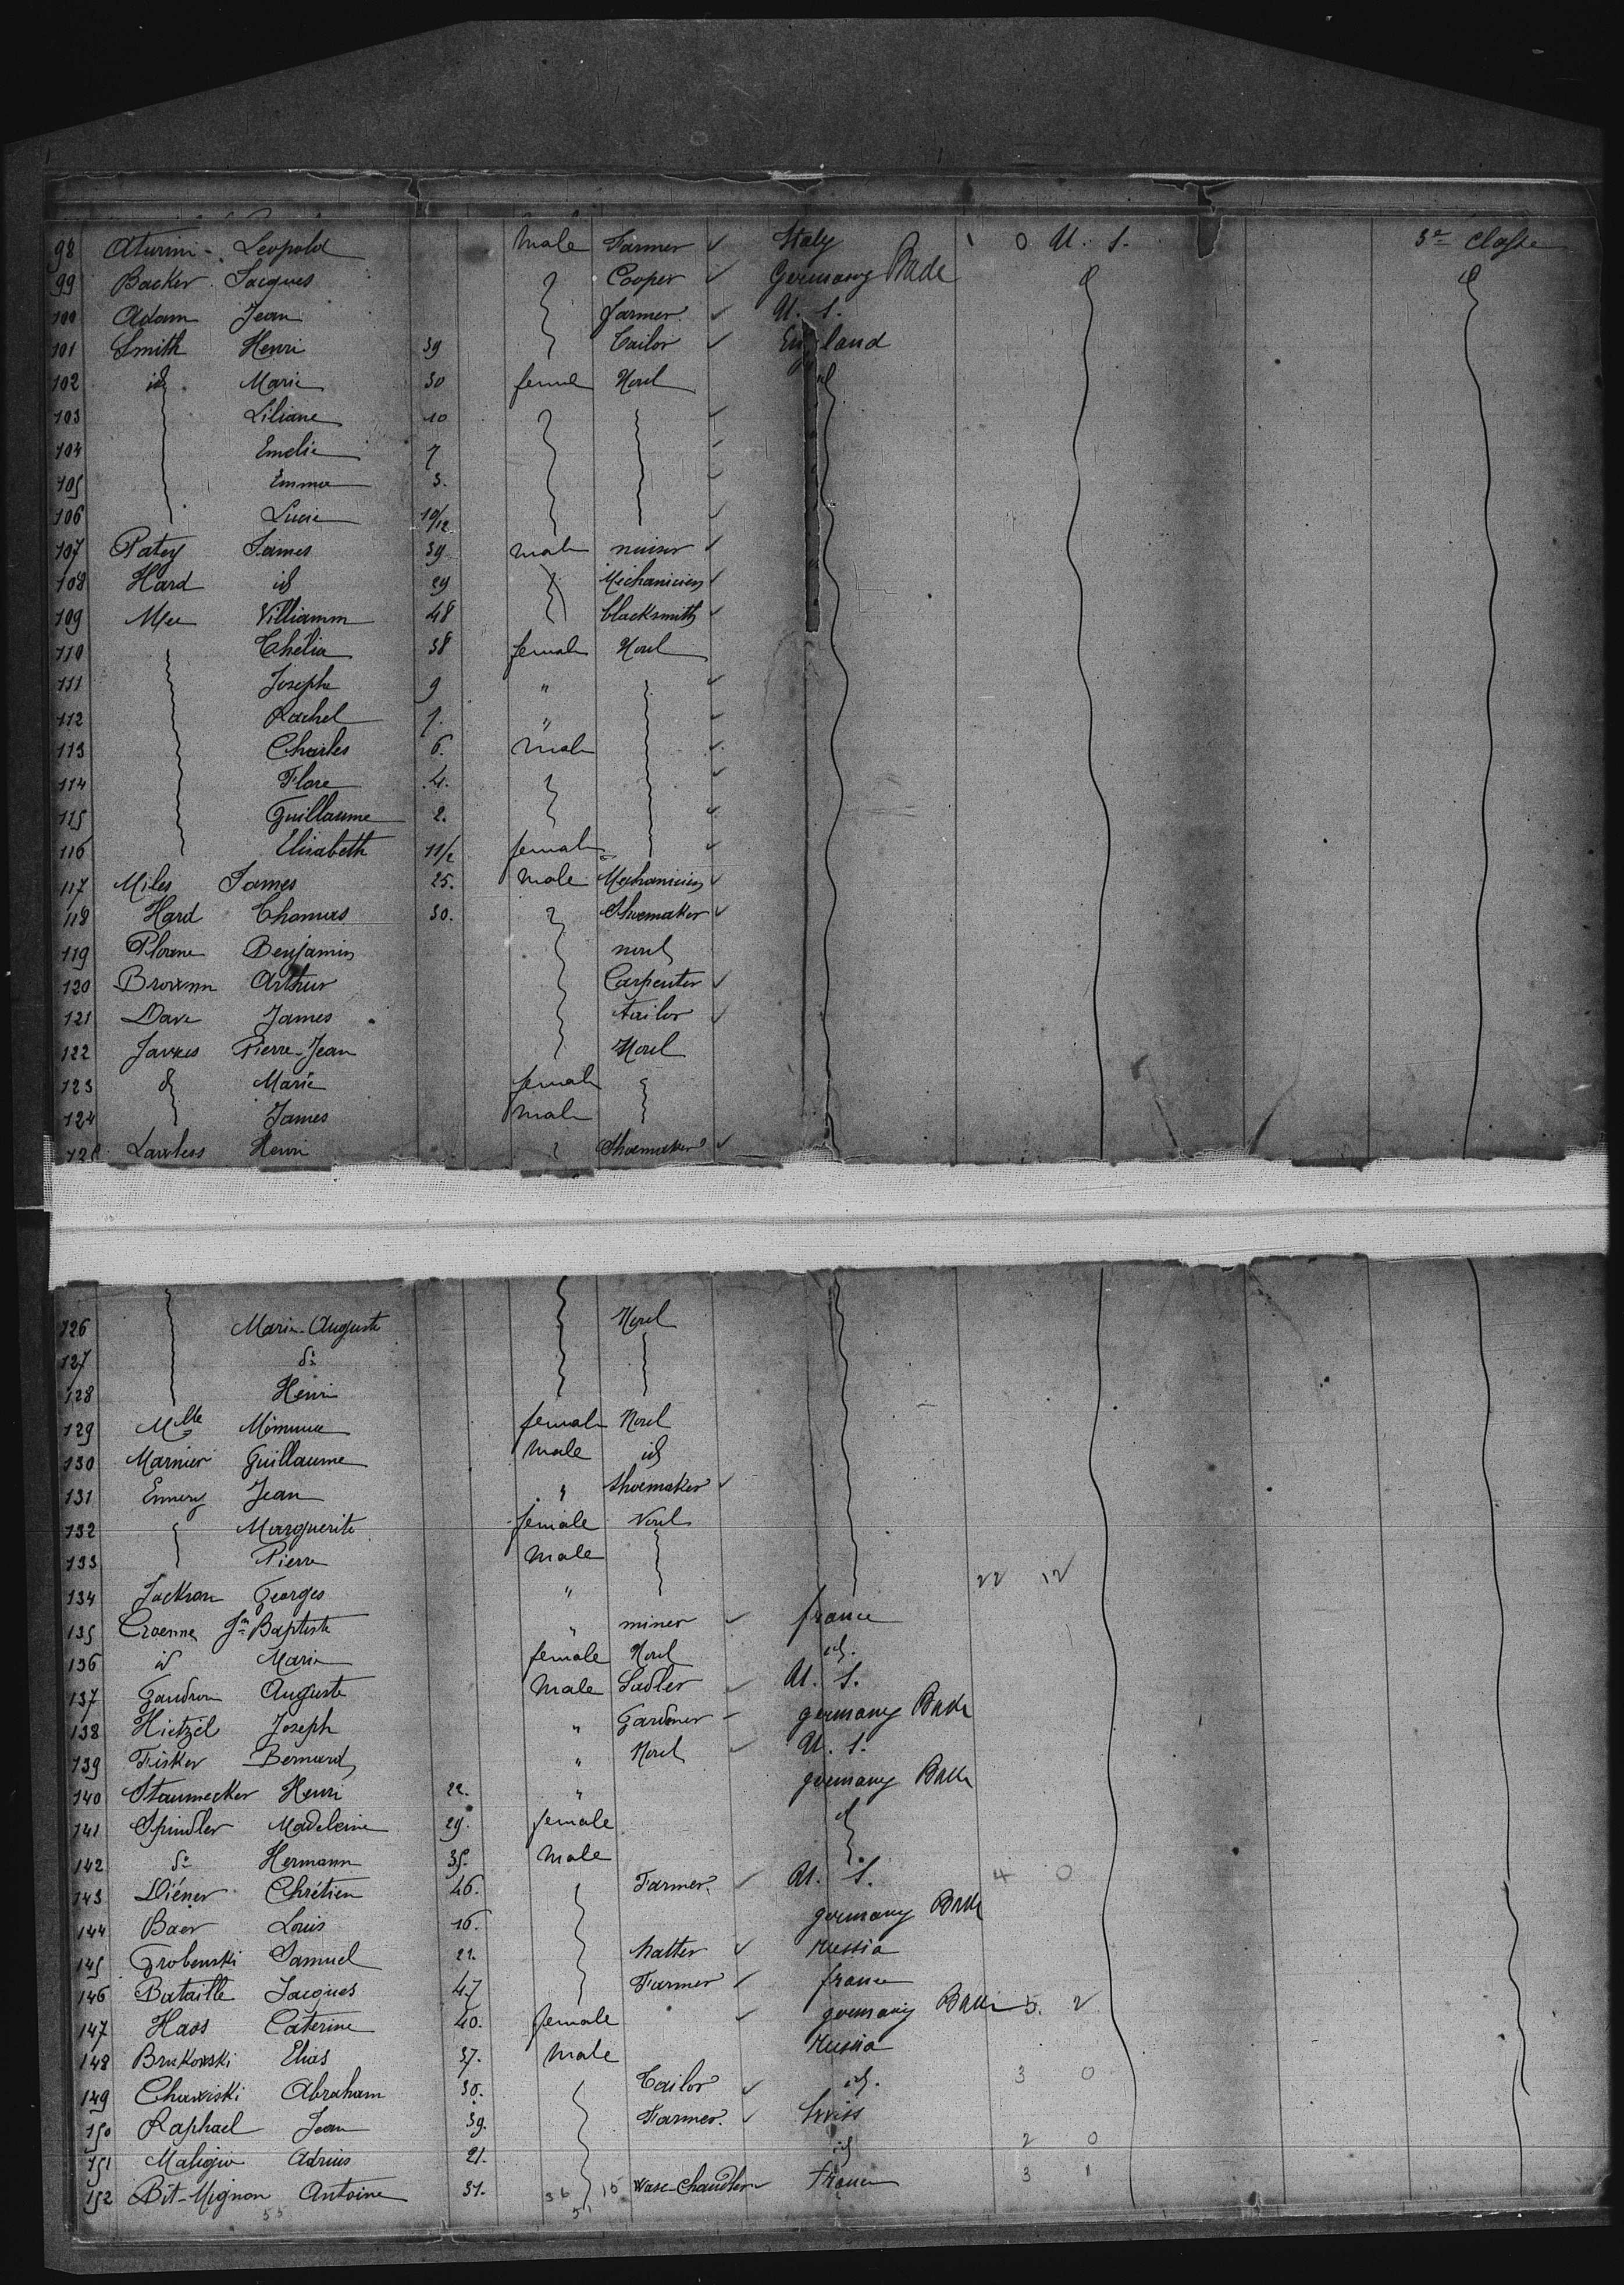 98 Aturini - Leopold male Farmer ✓ Italy 1 0 U. S. 3e Classe
99 Backer Jacques Cooper ✓ Germany Bade id
100 Adam Jean farmer ✓ U. S.
101 Smith Henri 39 Tailor ✓ England
102 id Marie 30 female Norel id
103 Liliane 10 ✓
104 Emelie 7 ✓
105 Emma 3. ✓
106 Lucie 10/12 ✓
107 Patey James 39 male miner ✓
108 Hard id 29 Mechanicien ✓
109 Mee Villiamm 48 blacksmith ✓
110 Thélia 38 female Norel
111 Joseph 9 " ✓
112 Rachel 7. " ✓
113 Charles 6. male ✓
114 Flore 4. ✓
115 Guillaume 2. ✓
116 Elisabeth 11/2 female ✓
117 Miles James 25. male Mechanicien ✓
118 Hard Thomas 30. Shoemaker ✓
119 Benjamin norel
120 Brownn Arthur Carpenter ✓
121 Dave James tailor ✓
122 Pierre-Jean Norel
123 d Marie female
124 James male
125 Lawless Henri Shoemaker ✓
126 Marie-Auguste Norel
127 do
128 Henri
129 Mlle female Norel
130 Marnier Guillaume male id
131 Emery Jean " Shoemaker ✓
132 Marguerite female Norel
133 Pierre male
134 Jackson Georges " 22 12
135 Croenne Jn Baptiste " miner ✓ france
136 id Marie female Norel id.
137 Gaudron Auguste male Sadler ✓ U. S.
138 Hietzel Joseph " Gardner germany Bade
139 Fisker Bernard " Norel ✓ U. S.
140 Staumecker Henri 22. " germany Bade
141 Spindler Madeleine 29. female id
142 do Hermann 35. male
143 Diéner Chrétien 46. Farmer. ✓ U. S. 4 0
144 Baer Louis 16. germany Bade
145 Grobenski Samuel 22. hatter ✓ russia
146 Bataille Jacques 47 Farmer ✓ france
147 Haas Caterine 40. female ✓ germany Bade 5. 2
148 Brukowski Elias 37. male russia
149 Chawiski Abraham 30. Tailor ✓ id. 3 0
150 Raphael Jean 39. Farmer. ✓ Swiss
151 Adrius 21. id 2 0
152 Bit-Mignon Antoine 31. 36 15 Wase-Chandler ✓ France 3 1
55 51